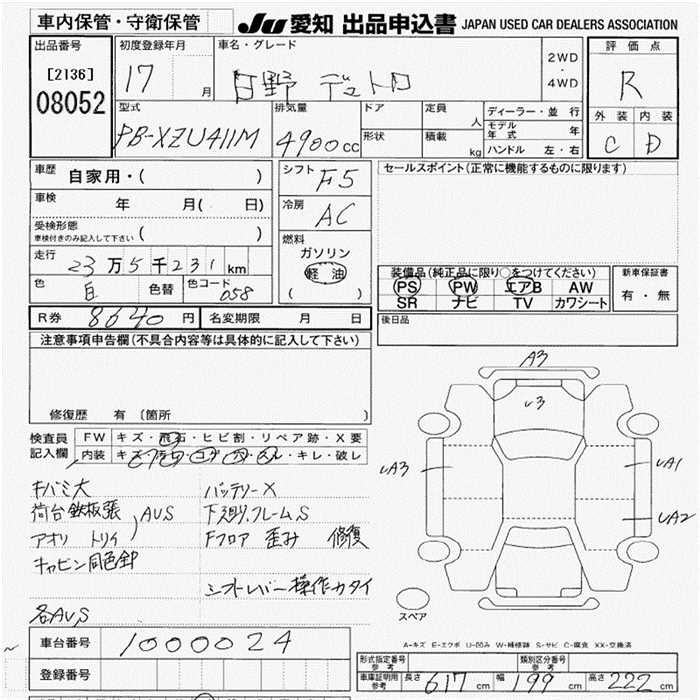 車内保管・守衛保管
JU 愛知 出品申込書 JAPAN USED CAR DEALERS ASSOCIATION
出品番号 初度登録年月 車名・グレード 評価点
[2136] 17 月 日野 デュトロ 2WD・4WD R
08052
型式 排気量 ドア 定員 人 ディーラー・並行 外装 内装
PB-XZU411M 4900cc 形状 積載 kg モデル年式 年 C D
ハンドル 左・右
車歴 自家用・( ) シフト F5 セールスポイント(正常に機能するものに限ります)
車検 年 月( 日) 冷房 AC
受検形態 ( )
車検付きのみ記入して下さい
走行 23万5千231km 燃料 ガソリン 軽油 ( )
装備品(純正品に限り○をつけてください) 新車保証書
色 白 色替 色コード 058 PS PW エアB AW 有・無
SR ナビ TV カワシート
R券 8640円 名変期限 月 日 後日品
注意事項申告欄(不具合内容等は具体的に記入して下さい)
A3
U3
修復歴 有(箇所
検査員 FW キズ・飛石・ヒビ割・リペア跡・X要
記入欄 内装 キレ・破レ
UA3 UA1
UA2
キバミ大 バッテリーX
荷台鉄板張 AUS 下廻り、フレームS
アオリ トリイ Fフロア 歪み 修復
キャビン同色
シフトレバー操作カタイ
各AUS スペア
車台番号 1000024
A-キズ E-エクボ U-凹み W-補修跡 S-サビ C-腐食 XX-交換済
形式指定番号 参考 類別区分番号 参考
登録番号 車庫証明用 参考 長さ 617cm 幅 199cm 高さ 222cm